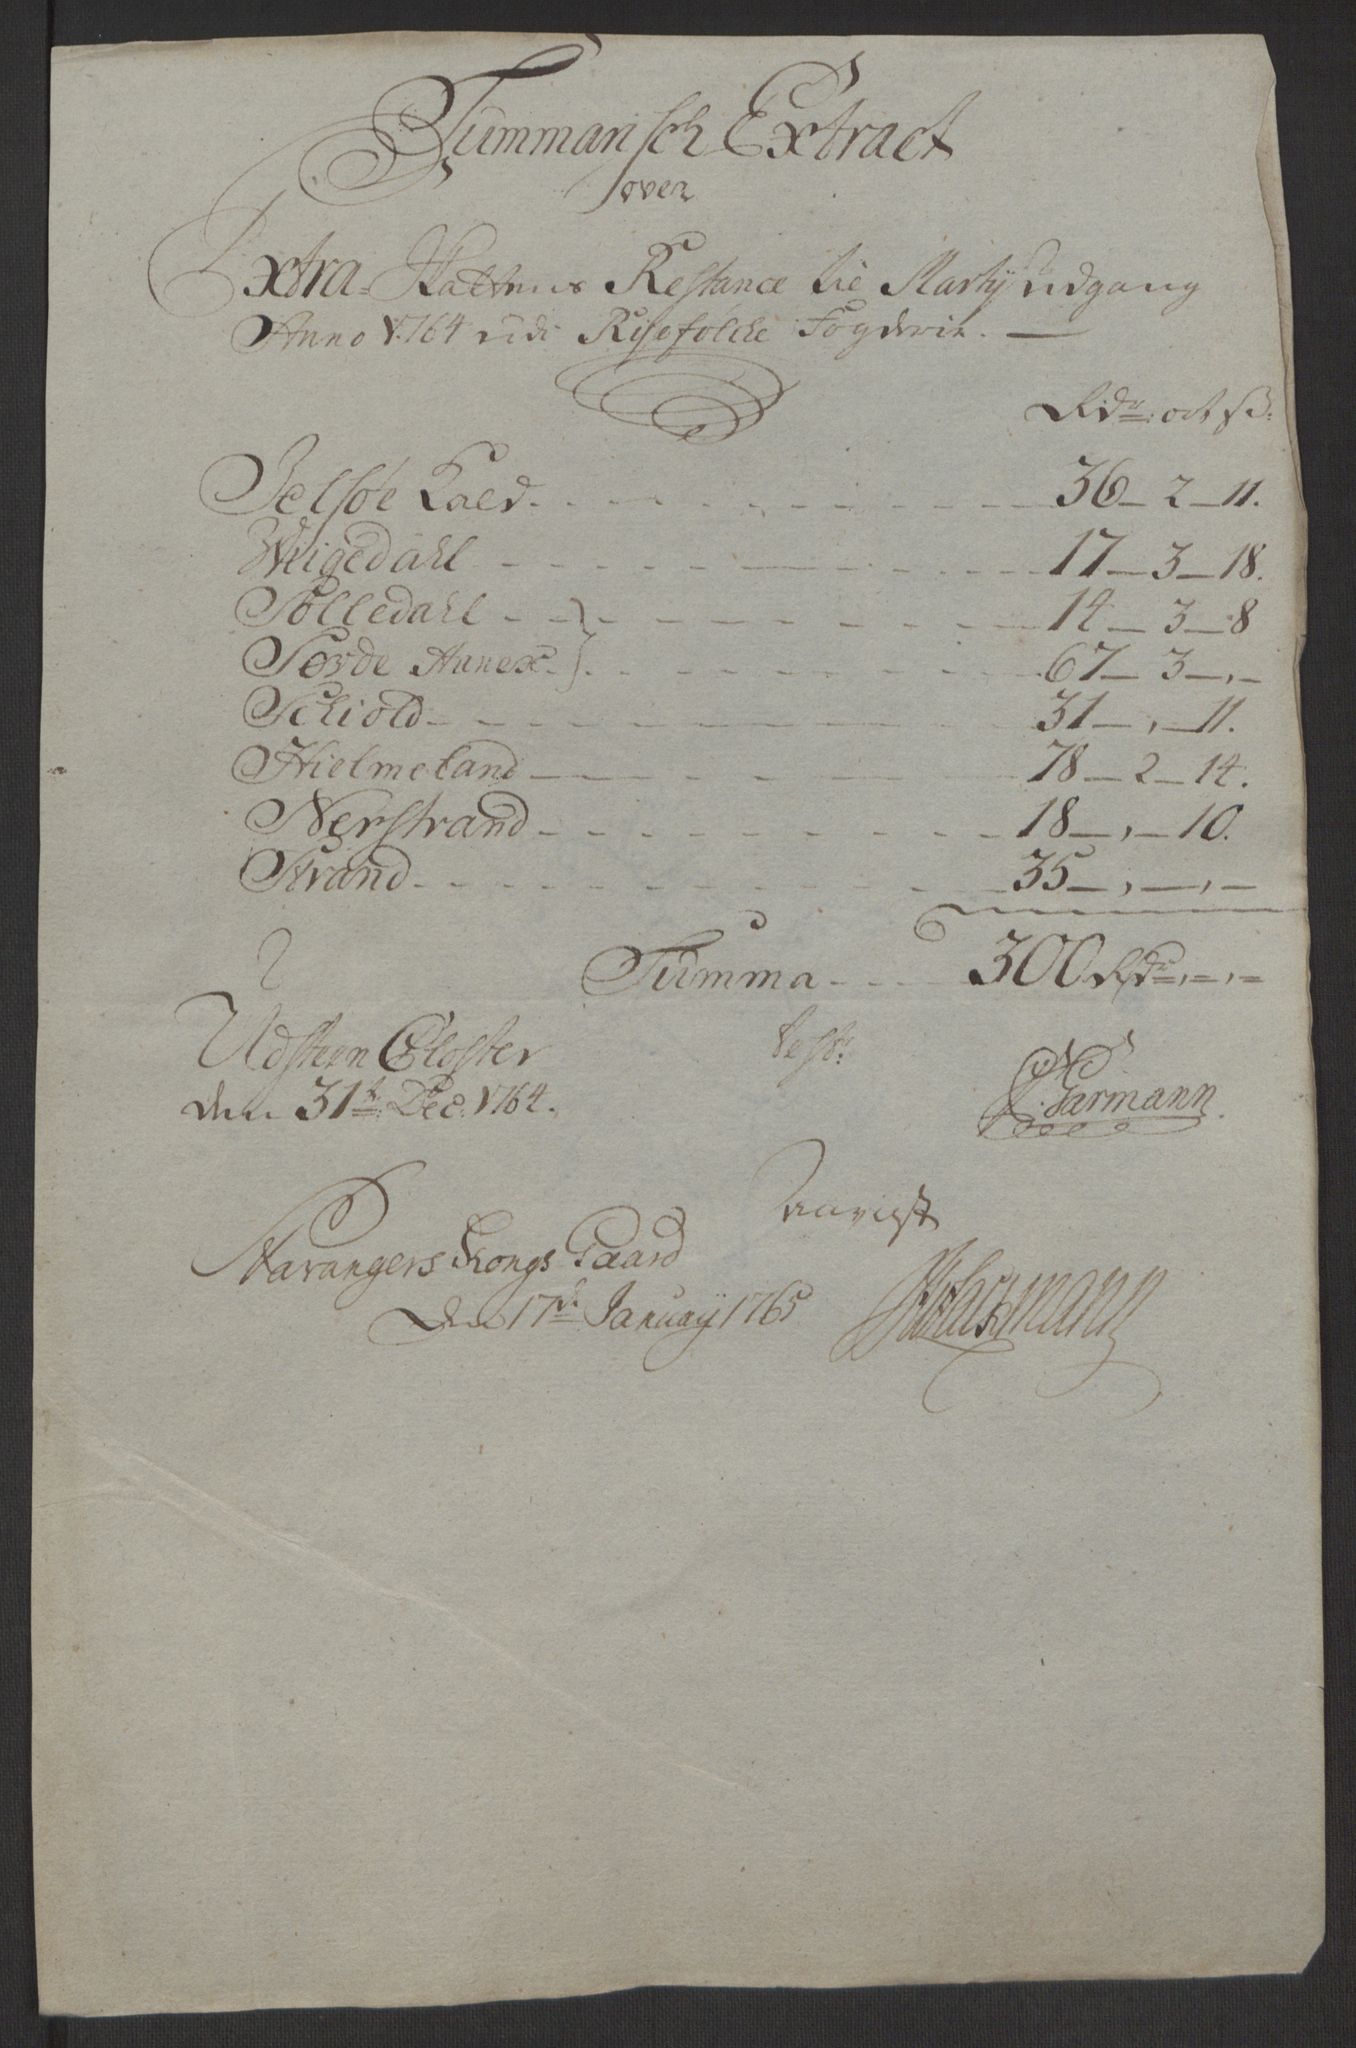 Summarisch Extract
over
Extra-Skattens Restance til Martij udgang
Anno 1764 udi Ryefylcke Fogderie.
Rdr: ort ſz:
Jelsøe Kald 36 2 11.
Weigedahl 17 3 18.
Sølledahl 14 3 8
Sovde Annex 67 3 „
Schiold 31 „ 11.
Hielmeland 78 2 14.
Nerstrand 18 „ 10.
Strand 35 „ „
Summa 300 Rdr „ „
Udsteen Closter test:
den 31te Dec: 1764. Garmann
Reviqt
Stavangers Kongs Gaard
den 17de Januarij 1765